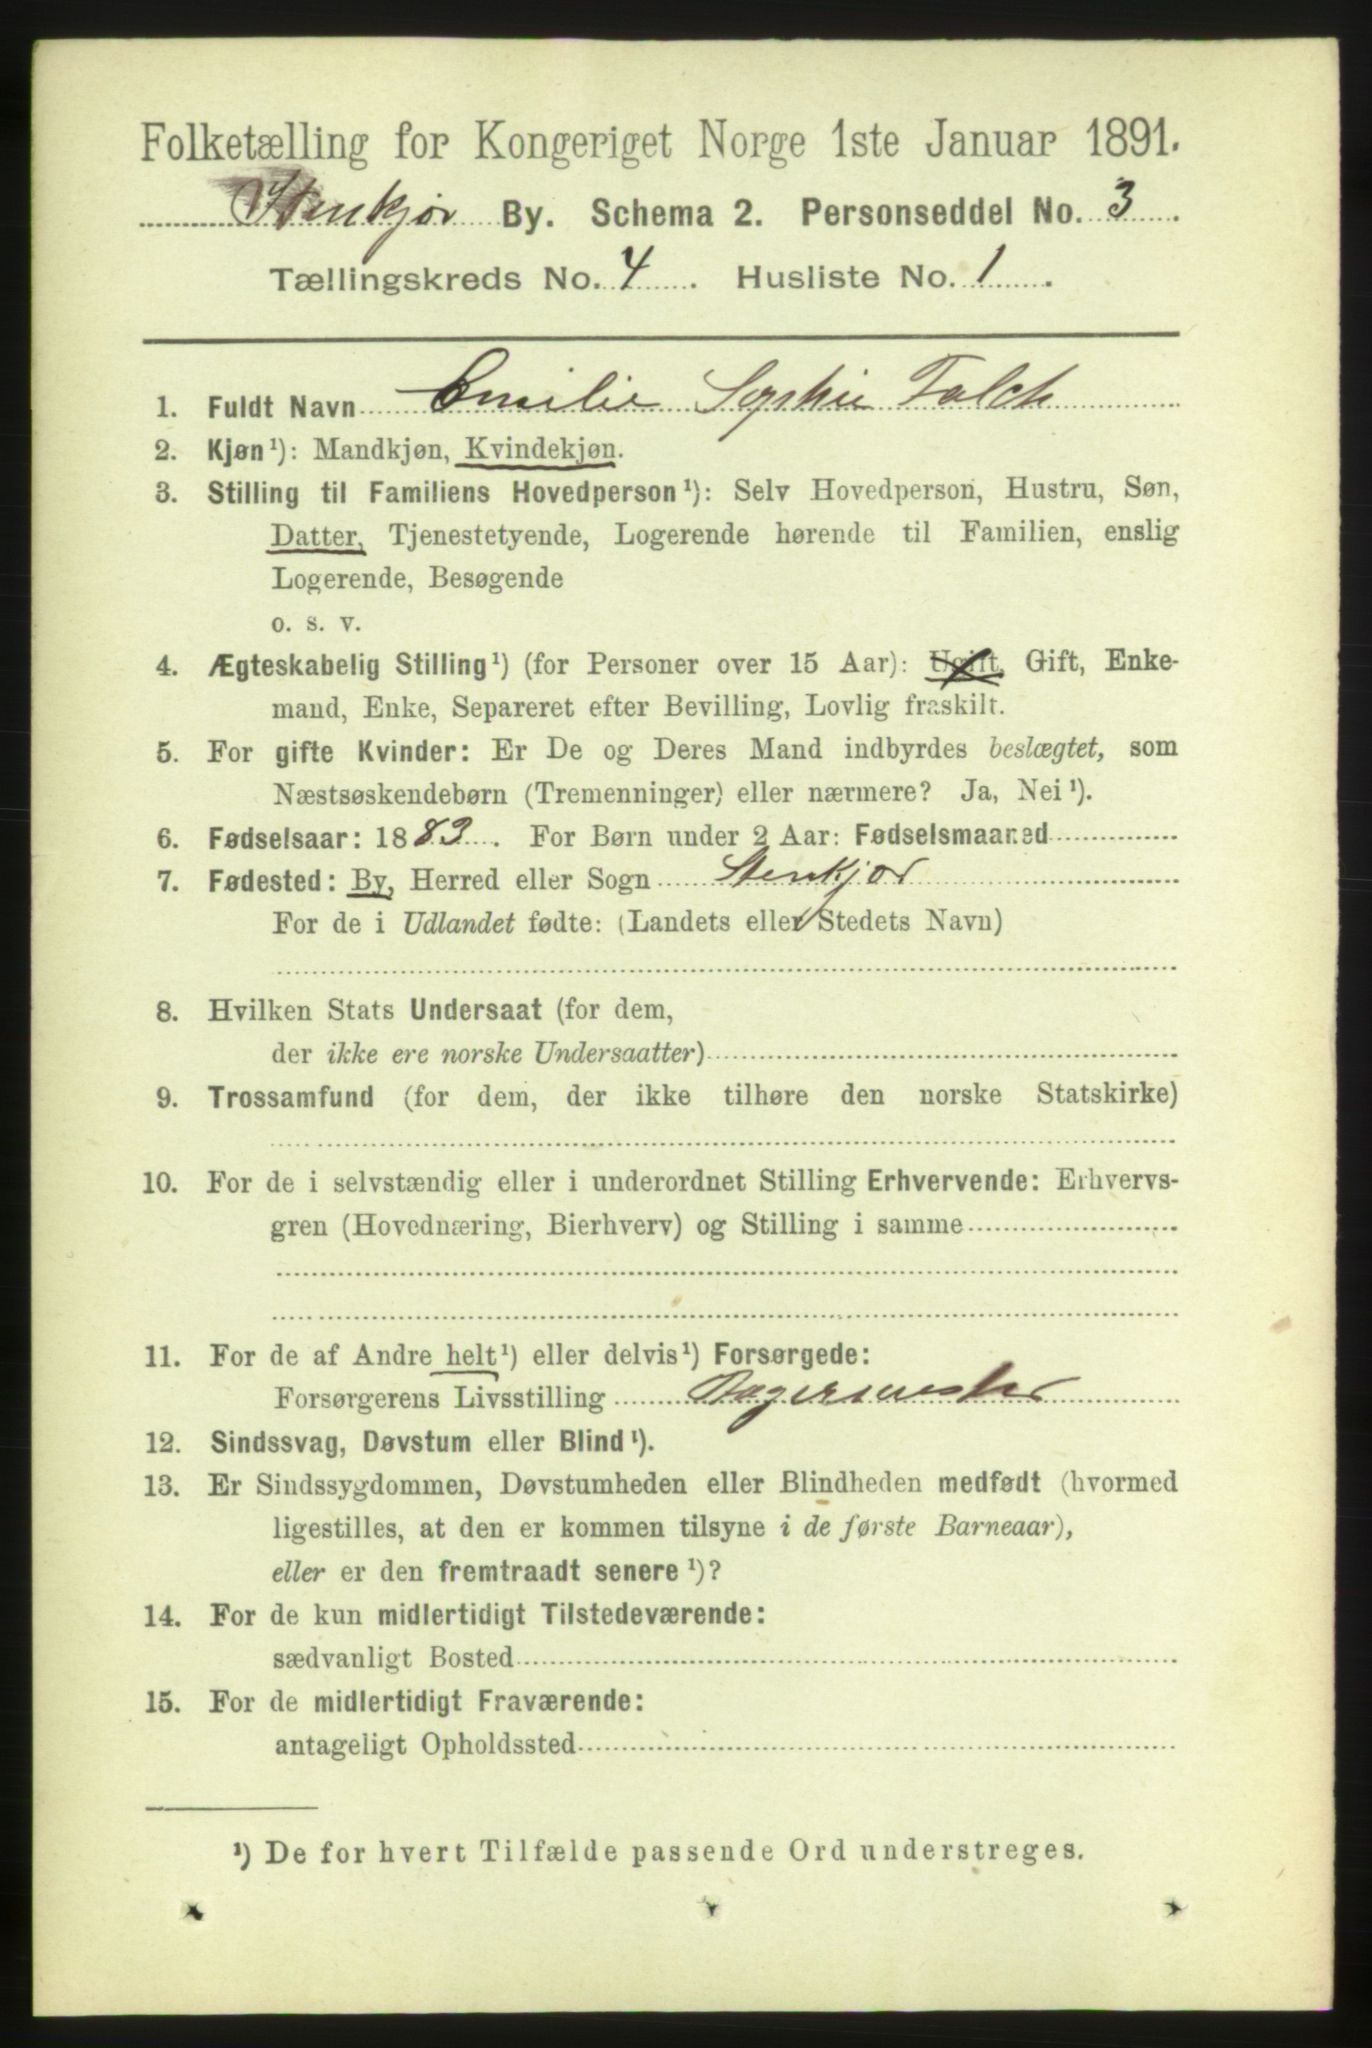 Folketælling for Kongeriget Norge 1ste Januar 1891.
Stenkjør By. Schema 2. Personseddel No. 3.
Tællingskreds No. 4. Husliste No. 1.
1. Fuldt Navn Emilie Sophie Falch
2. Kjøn¹): Mandkjøn, Kvindekjøn.
3. Stilling til Familiens Hovedperson¹): Selv Hovedperson, Hustru, Søn,
Datter, Tjenestetyende, Logerende hørende til Familien, enslig
Logerende, Besøgende
o. s. v.
4. Ægteskabelig Stilling¹) (for Personer over 15 Aar): Ugift, Gift, Enke-
mand, Enke, Separeret efter Bevilling, Lovlig fraskilt.
5. For gifte Kvinder: Er De og Deres Mand indbyrdes beslægtet, som
Næstsøskendebørn (Tremenninger) eller nærmere? Ja, Nei¹).
6. Fødselsaar: 1883. For Børn under 2 Aar: Fødselsmaaned
7. Fødested: By, Herred eller Sogn Stenkjør
For de i Udlandet fødte: (Landets eller Stedets Navn)
8. Hvilken Stats Undersaat (for dem,
der ikke ere norske Undersaatter)
9. Trossamfund (for dem, der ikke tilhøre den norske Statskirke)
10. For de i selvstændig eller i underordnet Stilling Erhvervende: Erhvervs-
gren (Hovednæring, Bierhverv) og Stilling i samme
11. For de af Andre helt¹) eller delvis¹) Forsørgede:
Forsørgerens Livsstilling Bagermester
12. Sindssvag, Døvstum eller Blind¹).
13. Er Sindssygdommen, Døvstumheden eller Blindheden medfødt (hvormed
ligestilles, at den er kommen tilsyne i de første Barneaar),
eller er den fremtraadt senere¹)?
14. For de kun midlertidigt Tilstedeværende:
sædvanligt Bosted
15. For de midlertidigt Fraværende:
antageligt Opholdssted
¹) De for hvert Tilfælde passende Ord understreges.